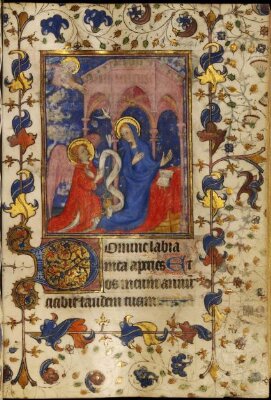 Domine labia
mea aperies Et
os meum annun
ciabit laudem tuam